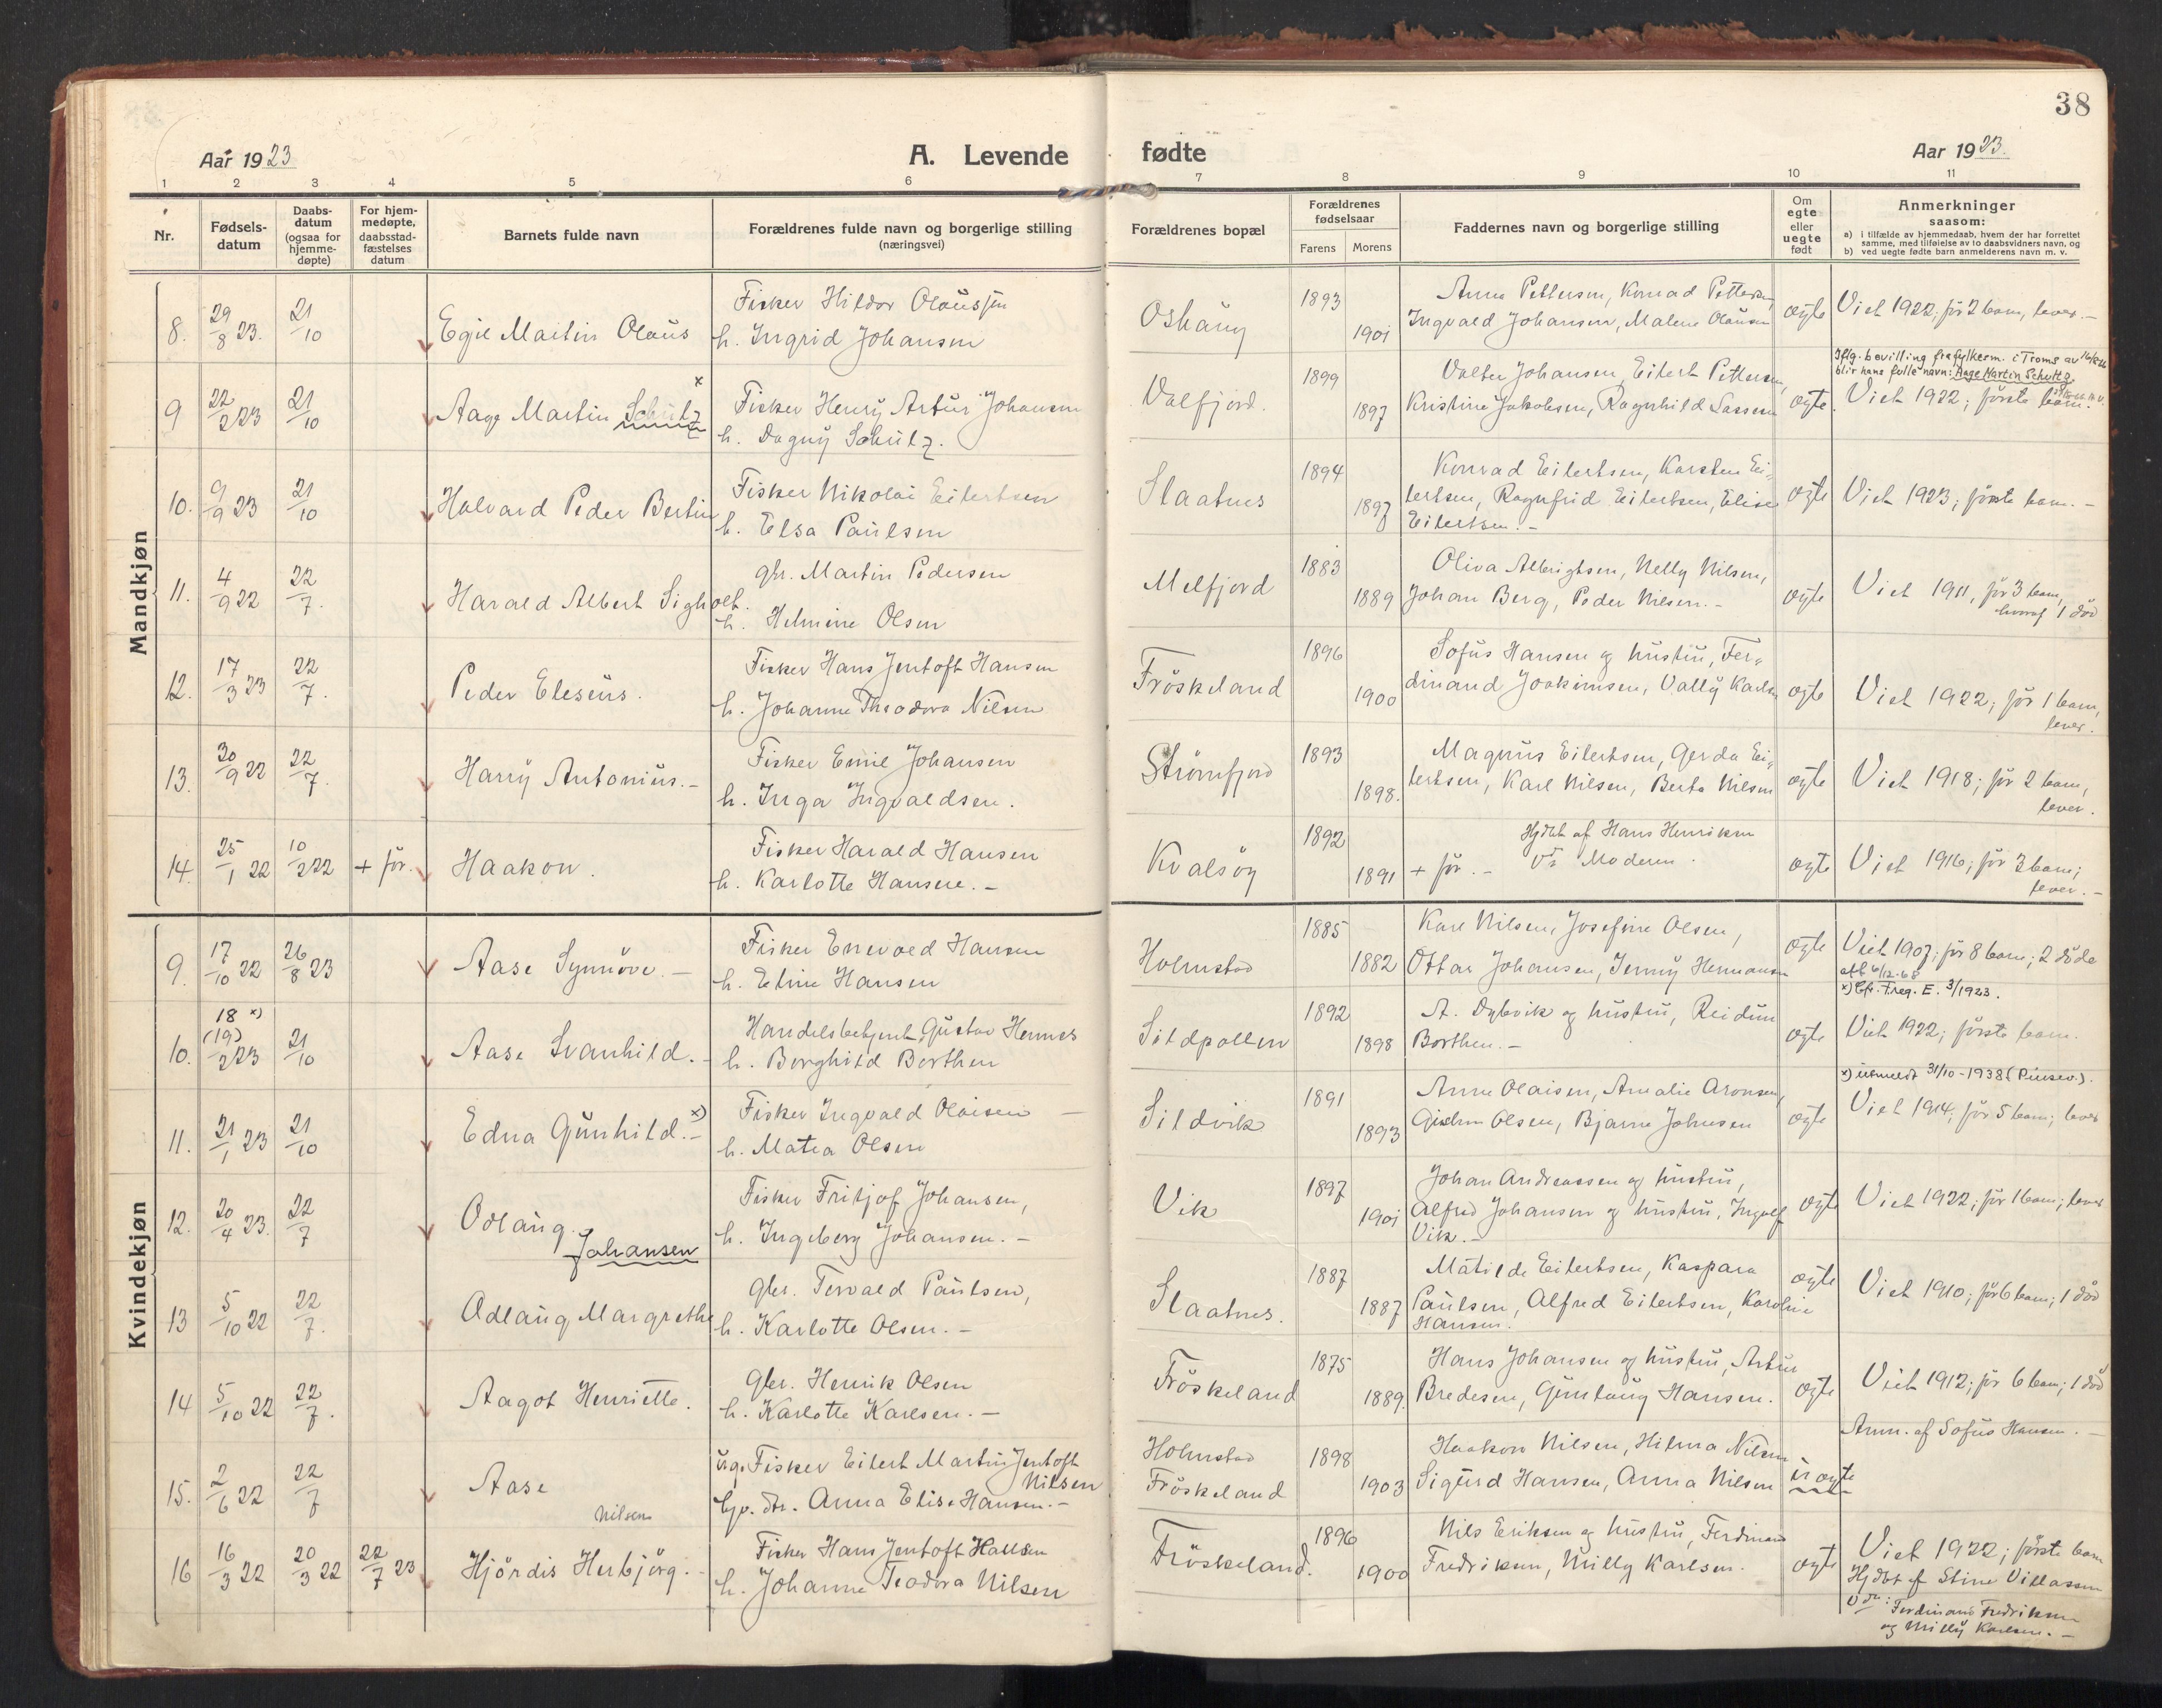 38
Aar 1923
A. Levende fødte
Aar 1923.
1 2 3 4 5 6 7 8 9 10 11
Nr.
Fødsels-
datum
Daabs-
datum
(ogsaa for
hjemme-
døpte)
For hjem-
medøpte,
daabsstad-
fæstelses
datum
Barnets fulde navn
Forældrenes fulde navn og borgerlige stilling
(næringsvei)
Forældrenes bopæl
Forældrenes
fødselsaar
Farens Morens
Faddernes navn og borgerlige stilling
Om
egte
eller
uegte
født
Anmerkninger
saasom:
a) i tilfælde av hjemmedaab, hvem der har forrettet
samme, med tilføielse av to daabsvidners navn, og
b) ved uegte fødte barn anmelderens navn m. v.
Mandkjøn
8. 29/8 23. 21/10 Egil Martin Olaus
Fisker Hildor Olaussen
h. Ingrid Johansen
Oshaug 1893 1901
Anna Pettersen, Konrad Pettersen,
Ingvald Johansen, Malene Olausen
egte Viet 1922; før 2 barn, lever. –
9 22/2 23 21/10 Aage Martin Schultz x
Fisker Henry Artur Johansen
h. Dagny Schultz.
Valfjord. 1899 1897
Valter Johansen, Eilert Pettersen,
Kristine Jakobsen, Ragnhild Lassen
egte.
Iflg. bevilling fra fylkesm. i Troms av
blir hans fulle navn: Aage Martin Schultz
Viet 1922; første barn.
10. 9/9 23 21/10 Halvard Peder Bertin
Fisker Nikolai Eilertsen
h. Elsa Paulsen
Slaatnes 1894 1897
Konrad Eilertsen, Karsten Ei-
lertsen, Ragnfrid Eilertsen, Elise
Eilertsen. –
egte Viet 1923; første barn. –
11. 4/9 22 22/7. Harald Albert Sigholt.
gbr. Martin Pedersen
h. Helmine Olsen
Melfjord 1883 1889
Oliva Albrigtsen, Nelly Nilsen,
Johan Berg, Peder Nilsen. –
egte Viet 1911, før 3 barn,
hvoraf 1 død
12. 17/3 23 22/7. Peder Eleseus.
Fisker Hans Jentoft Hansen
h. Johanne Theodora Nilsen
Frøskeland 1896 1900
Sofus Hansen og hustru, Fer-
dinand Joakimsen, Vally Karlsen
egte Viet 1922; før 1 barn,
lever.
13. 20/9 22 22/7. Harry Antonius. –
Fisker Emil Johansen
h. Inga Ingvaldsen.
Strømfjord 1893 1898.
Magnus Eilertsen, Gerda Ei-
lertsen, Karl Nilsen, Berta Nilsen
egte Viet 1918; før 2 barn,
lever.
14. 25/1 22 10/2 22 + før. Haakon.
Fisker Harald Hansen
h. Karlotte Hansen. –
Kvalsøy 1892 1891
Hjdbt af Hans Henriksen
+ før. – Moderen.
egte Viet 1916; før 3 barn;
lever. –
Kvindekjøn
9. 17/10 22 26/8 23 Aase Synnøve. –
Fisker Enevald Hansen
h. Eline Hansen
Holmstad 1885 1882
Karl Nilsen, Josefine Olsen,
Ottar Johansen, Jenny Hermansen
egte Viet 1907; før 8 barn; 2 døde
att 6/12-68
10. 18 x) (19)/2 23 21/10 Aase Svanhild. –
Handelsbetjent Gustav Hennes
h. Borghild Borthen
Sildpollen 1892 1898
A. Dybvik og hustru, Reidun
Borthen. –
egte
x) Cfr. F.reg. E. 3/1923.
Viet 1922; første barn.
11. 21/1 23 21/10 Edna Gunhild. – x)
Fisker Ingvald Olaisen –
h. Matea Olsen
Sildvik 1891 1893
Anna Olaisen, Amalie Aronsen,
Olsen, Bjarne Johnsen
egte
x) utmeldt 31/10 - 1938 (Pinsev.).
Viet 1914; før 5 barn; lever
12. 20/4 23. 22/7 Odlaug.
Johansen
Fisker Fritjof Johansen,
h. Ingeborg Johansen. –
Vik 1897 1901
Johan Andreassen og hustru,
Alfred Johansen og hustru, Ingolf
Vik. –
egte Viet 1922; før 1 barn; lever
13 5/10 22 22/7. Odlaug Margrethe
gbr. Tervald Paulsen,
h. Karlotte Olsen. –
Slaatnes. 1887 1887
Matilde Eilertsen, Kaspara
Paulsen, Alfred Eilertsen, Karoline
Hansen.
egte Viet 1910; før 6 barn; 1 død
14 5/10 22 22/7. Aagot Henriette.
gbr. Henrik Olsen
h. Karlotte Karlsen. –
Frøskeland 1875 1889.
Hans Johansen og hustru, Artur
Bredesen, Gunlaug Hansen.
egte Viet 1912; før 6 barn; 1 død
15. 2/6 22 22/7 Aase
Nilsen
ug. Fisker Eilert Martin Jentoft
Nilsen
Anna Elise Hansen. –
Holmstad
Frøskeland 1898 1903
Haakon Nilsen, Hilma Nilsen
Sigurd Hansen, Anna Nilsen
uegte
Anm. af Sofus Hansen. –
16 16/3 22 20/3 22 22/7 23 Hjördis Herbjörg. –
Fisker Hans Jentoft Hansen
h. Johanne Teodora Nilsen
Frøskeland. 1896 1900
Nils Eriksen og hustru, Ferdinand
Fredriksen, Milly Karlsen.
egte Viet 1922; første barn
Hjdbt af Stine Villassen
Ferdinand Fredriksen
og Milly Karlsen. –